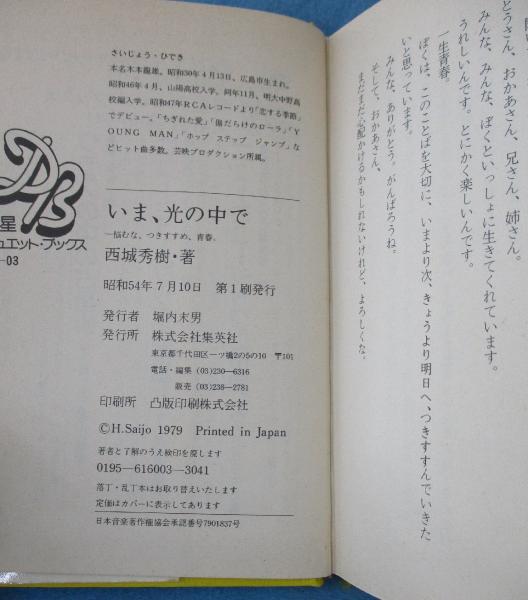 とうさん、おかあさん、兄さん、姉さん。
みんな、みんな、ぼくといっしょに生きてくれています。
うれしいんです。とにかく楽しいんです。
一生青春。
ぼくは、このことばを大切に、いまより次、きょうより明日へ、つきすすんでいきた
いと思っています。
みんな、ありがとう。がんばろうね。
そして、おかあさん、
まだまだ心配かけるかもしれないけれど、よろしくな。
さいじょう・ひでき
本名木本龍雄。昭和30年4月13日、広島市生まれ。
昭和46年4月、山陽高校入学。同年11月、明大中野高
校編入学。昭和47年RCAレコードより「恋する季節」
でデビュー。「ちぎれた愛」「傷だらけのローラ」「Y
OUNG MAN」「ホップ ステップ ジャンプ」な
どヒット曲多数。芸映プロダクション所属。
DB
星
ュエット・ブックス
-03
いま、光の中で
—悩むな、つきすすめ、青春。
西城秀樹・著
昭和54年7月10日 第1刷発行
発行者 堀内末男
発行所 株式会社集英社
東京都千代田区一ツ橋2の5の10 〒101
電話・編集 (03)230—6316
販売 (03)238—2781
印刷所 凸版印刷株式会社
©H.Saijo 1979 Printed in Japan
著者と了解のうえ検印を廃します
0195—616003—3041
落丁・乱丁本はお取り替えいたします
定価はカバーに表示してあります
日本音楽著作権協会承認番号7901837号